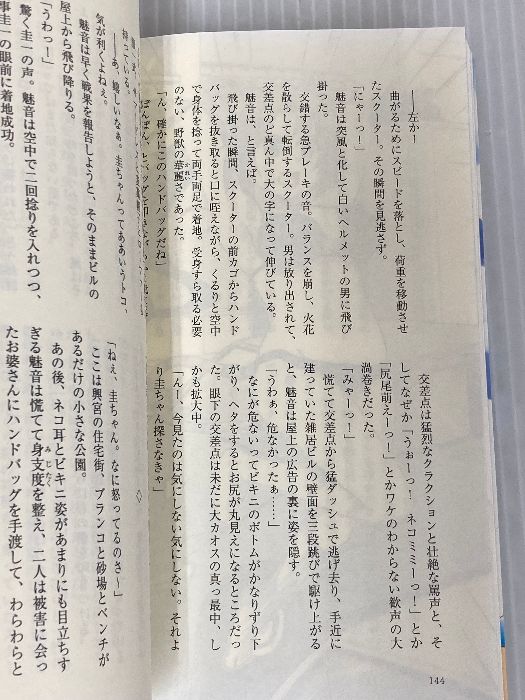 ――左かー
曲がるためにスピードを落とし、荷重を移動させ
たスクーター。その瞬間を見逃さず。
「にゃーっ！」
魅音は突風と化して白いヘルメットの男に飛び
掛った。
交錯する急ブレーキの音。バランスを崩し、火花
を散らして転倒するスクーター。男は放り出されて、
交差点のど真ん中で大の字になって伸びている。
魅音は、と言えば。
飛び掛った瞬間、スクーターの前カゴからハンド
バッグを抜き取ると口に咥えながら、くるりと空中
で身体を捻って両手両足で着地。受身すら取る必要
のない、野獣の華麗さであった。
かれい
「ん、確かにこのハンドバッグだね」
交差点は猛烈なクラクションと壮絶な罵声と、そ
してなぜか「うぉーっ！　ネコミミーっ！」とか
「尻尾萌えーっ！」とかワケのわからない歓声の大
渦巻きだった。
「みゃーっ！」
慌てて交差点から猛ダッシュで逃げ去り、手近に
建っていた雑居ビルの壁面を三段跳びで駆け上がる
と、魅音は屋上の広告の裏に姿を隠す。
「うわぁ、危なかったぁ……」
なにが危ないってビキニのボトムがかなりずり下
がり、ヘタをするとお尻が丸見えになるところだっ
た。眼下の交差点は未だに大カオスの真っ最中、し
かも拡大中。
「んー、今見たのは気にしない気にしない。それよ
り圭ちゃん探さなきゃ」
144
――あ、嬉しいなぁ。圭ちゃんってああいうトコ、
気が利くよねぇ。
魅音は早く戦果を報告しようと、そのままビルの
屋上から飛び降りる。
「うわっー」
驚く圭一の声。魅音は空中で二回捻りを入れつつ、
事圭一の眼前に着地成功。
◇
「ねぇ、圭ちゃん。なに怒ってるのさ〜」
ここは興宮の住宅街、ブランコと砂場とベンチが
あるだけの小さな公園。
あの後、ネコ耳とビキニ姿があまりにも目立ちす
ぎる魅音は慌てて身支度を整え、二人は被害に会っ
みじたく
たお婆さんにハンドバッグを手渡して、わらわらと